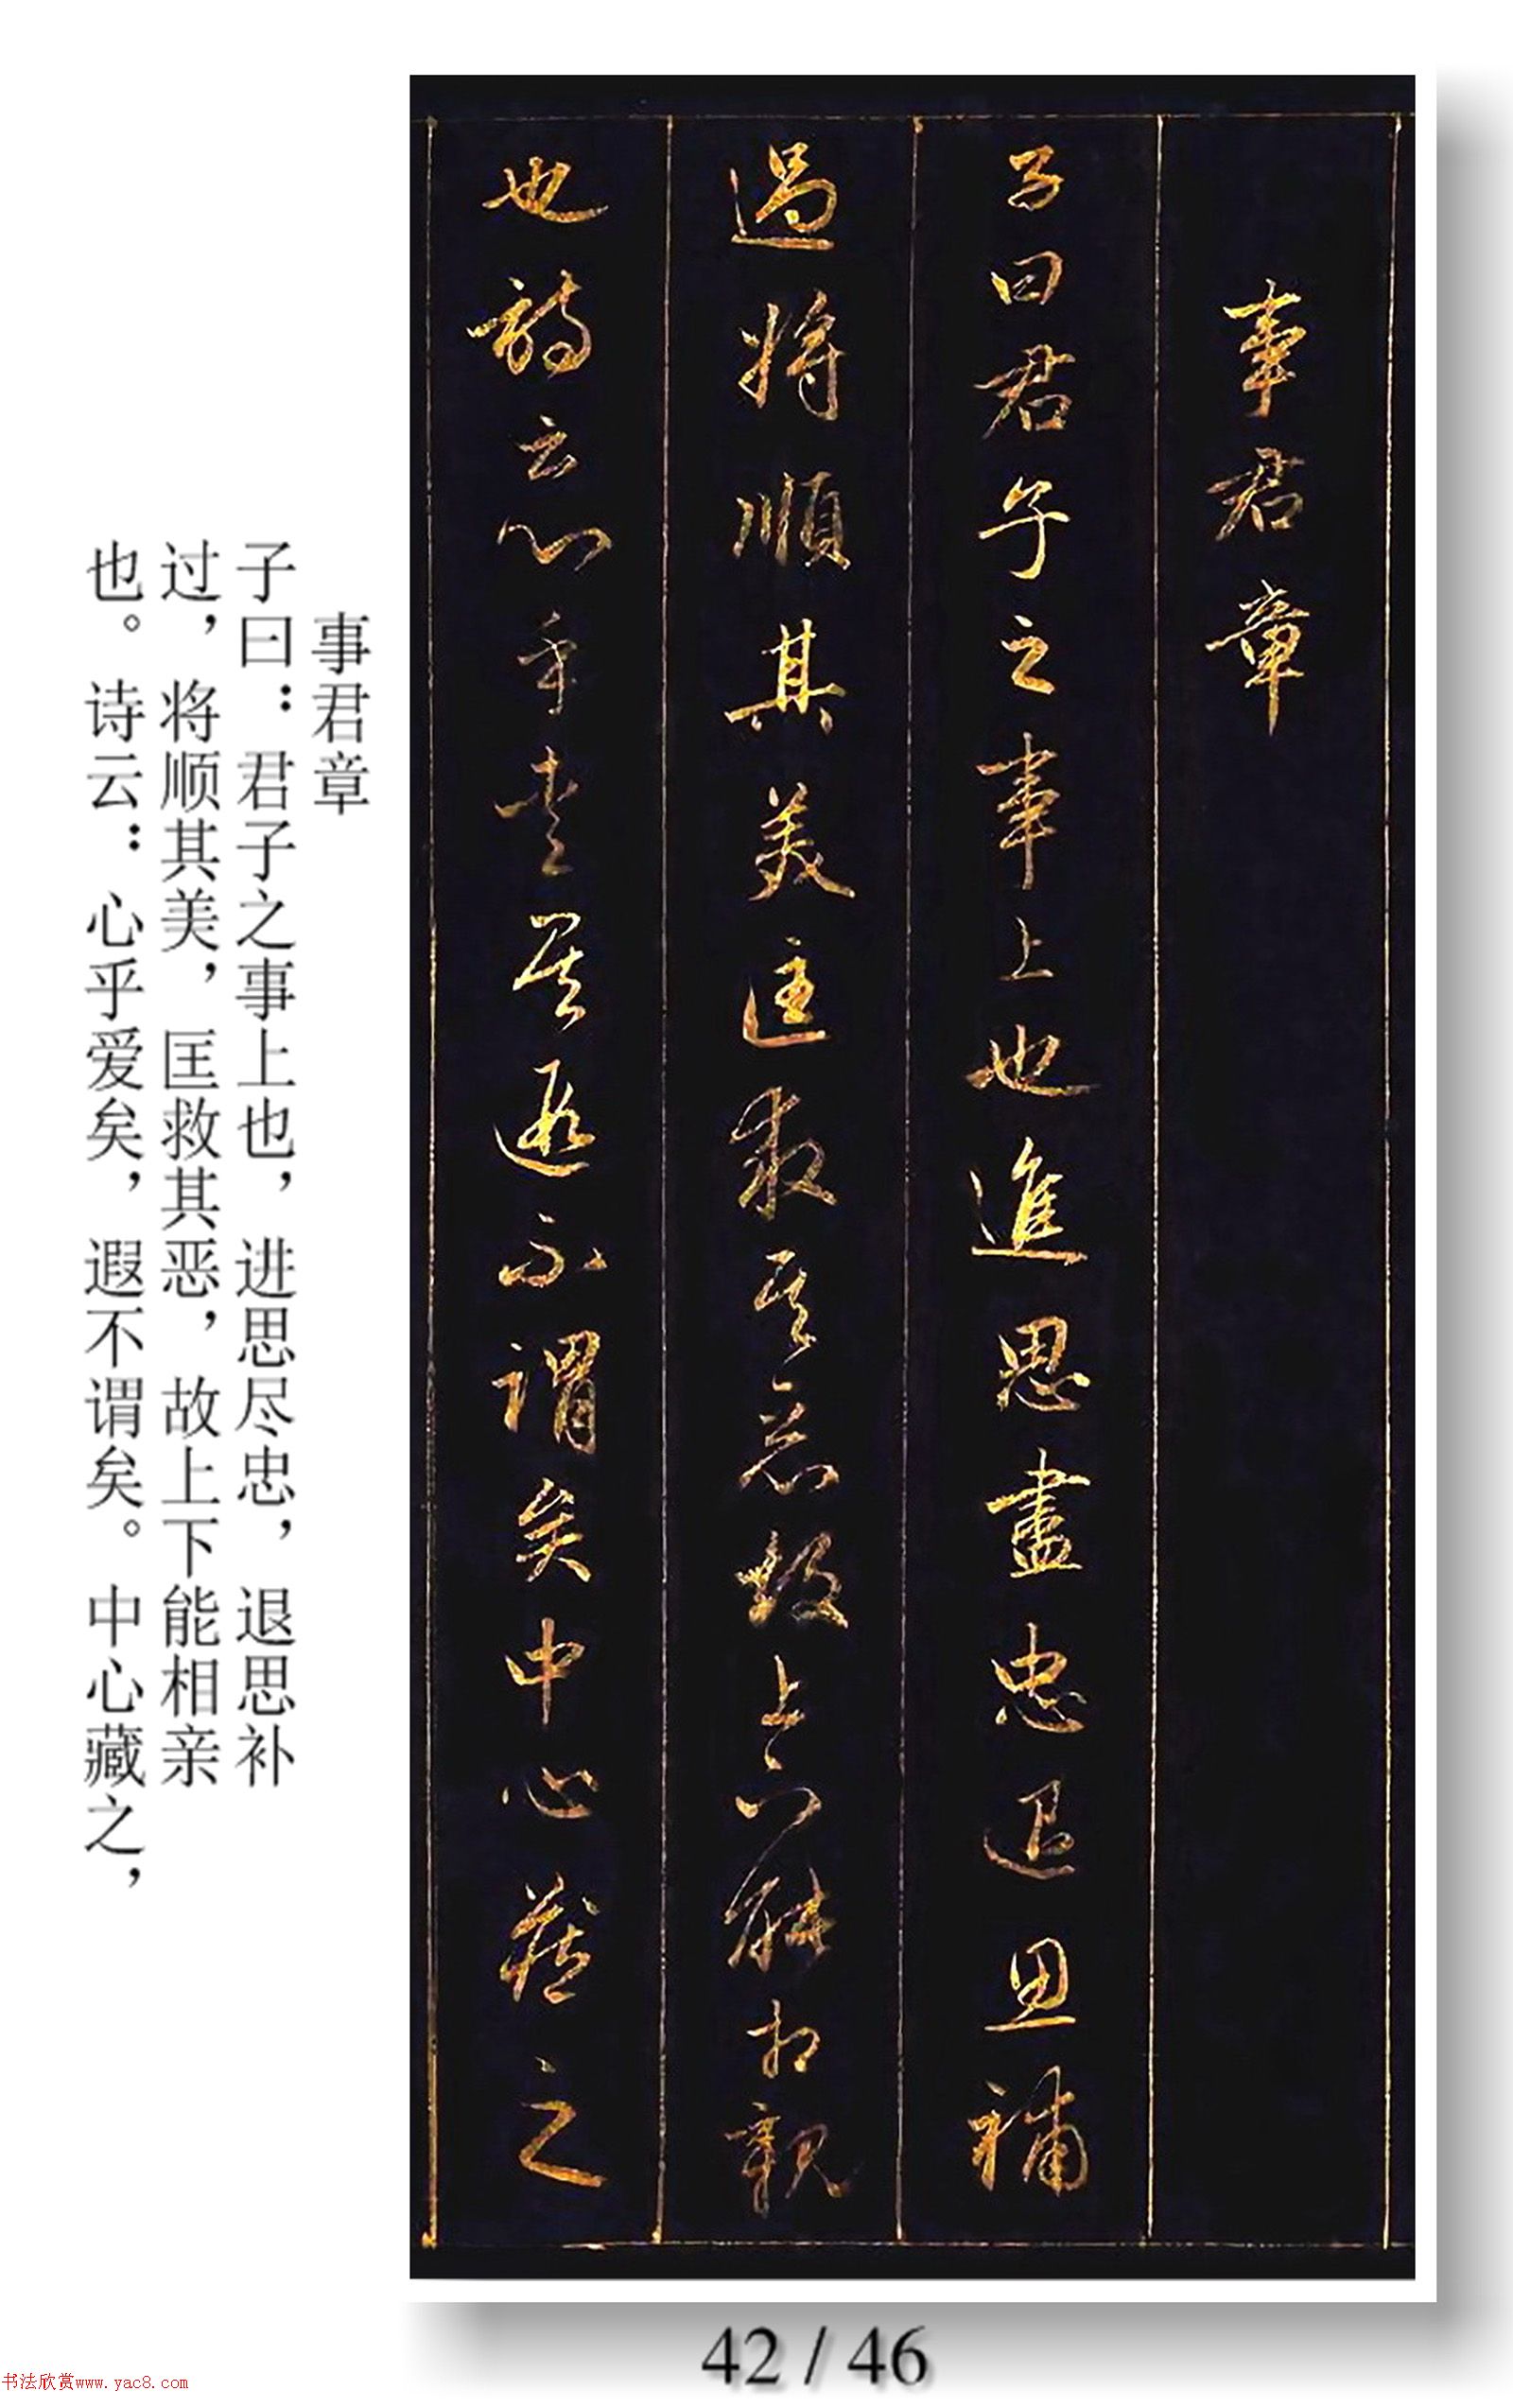 事君章
子曰君子之事上也進思盡忠退思補
過將順其美匡救其惡故上下能相親
也詩云心乎愛矣遐不謂矣中心藏之
事君章
子曰：君子之事上也，进思尽忠，退思补
过，将顺其美，匡救其恶，故上下能相亲
也。诗云：心乎爱矣，遐不谓矣。中心藏之，
42 / 46
书法欣赏www.yac8.com